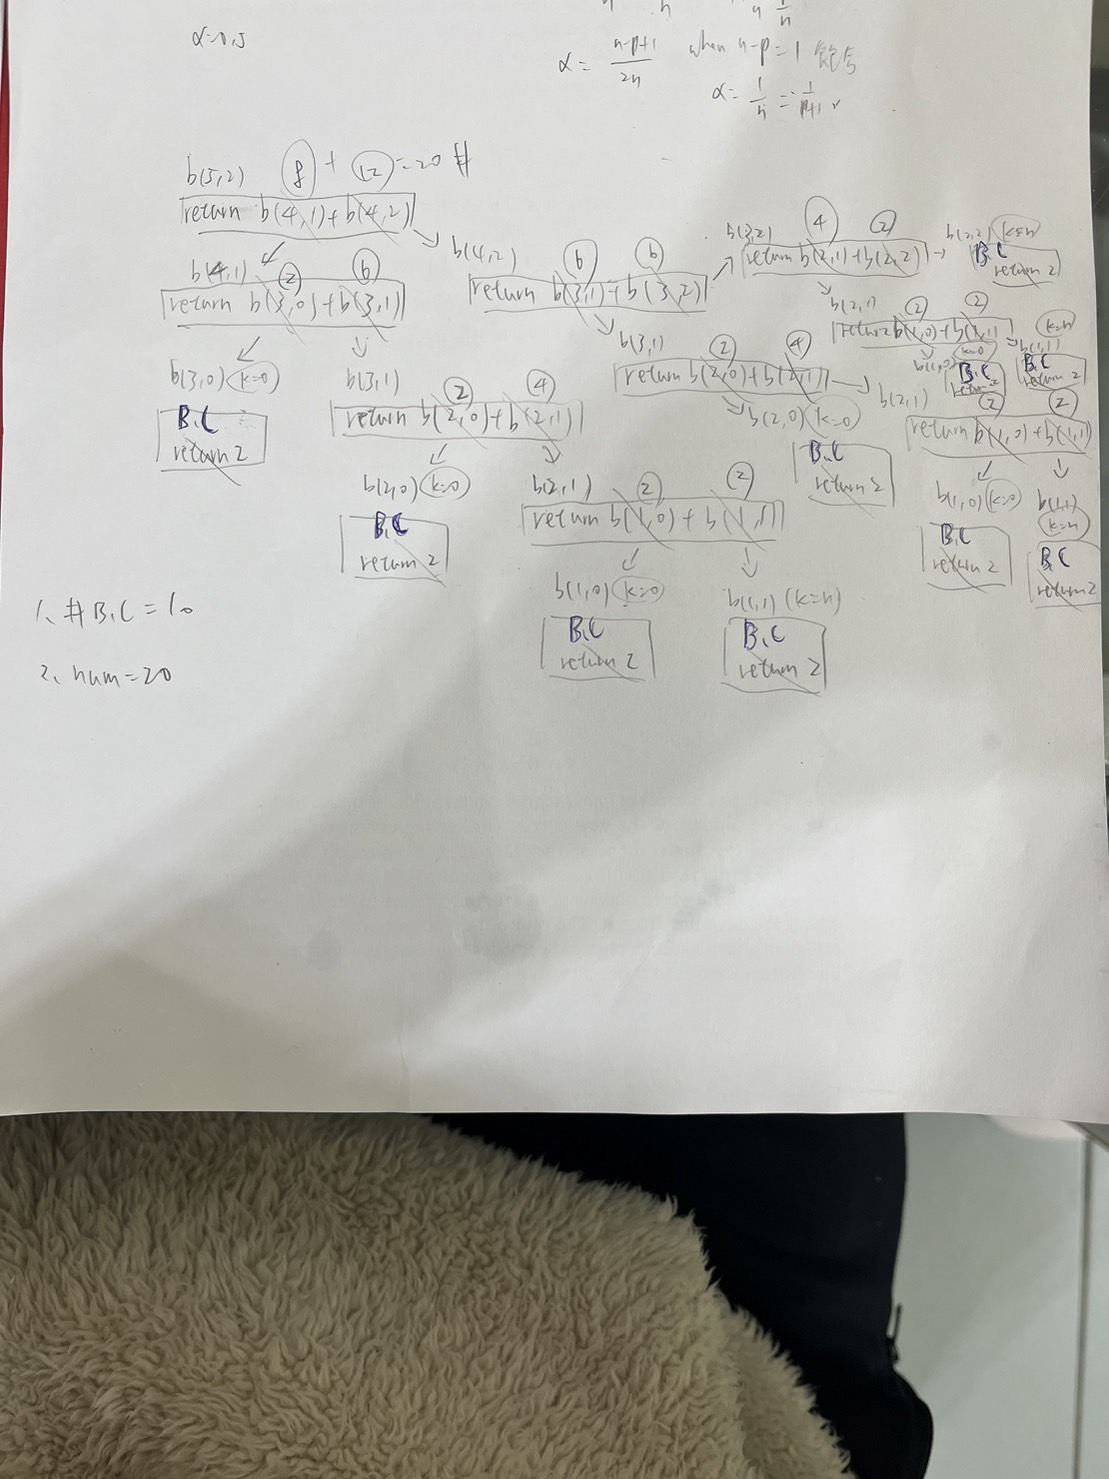 α=0.5
α= n-p+1 / 2n when n-p=1
α= 1/n = 1/p+1
b(5,2) 8 + 12 =20 #
return b(4,1)+b(4,2)
b(4,1) 2 6
return b(3,0)+b(3,1)
b(4,2) 6 6
return b(3,1)+b(3,2)
b(3,2) 4 2
return b(2,1)+b(2,2)
b(2,2) k=n
B.C
return 2
b(2,1) 2 2
return b(1,0)+b(1,1)
b(1,0) k=0
B.C
return 2
b(1,1) k=n
B.C
return 2
b(3,0) k=0
B.C
return 2
b(3,1) 2 4
return b(2,0)+b(2,1)
b(3,1) 2 4
return b(2,0)+b(2,1)
b(2,0) k=0
B.C
return 2
b(2,1) 2 2
return b(1,0)+b(1,1)
b(2,0) k=0
B.C
return 2
b(2,1) 2 2
return b(1,0)+b(1,1)
b(1,0) k=0
B.C
return 2
b(1,1)
k=n
B.C
return 2
b(1,0) k=0
B.C
return 2
b(1,1) (k=n)
B.C
return 2
1、# B.C = 10
2、num=20